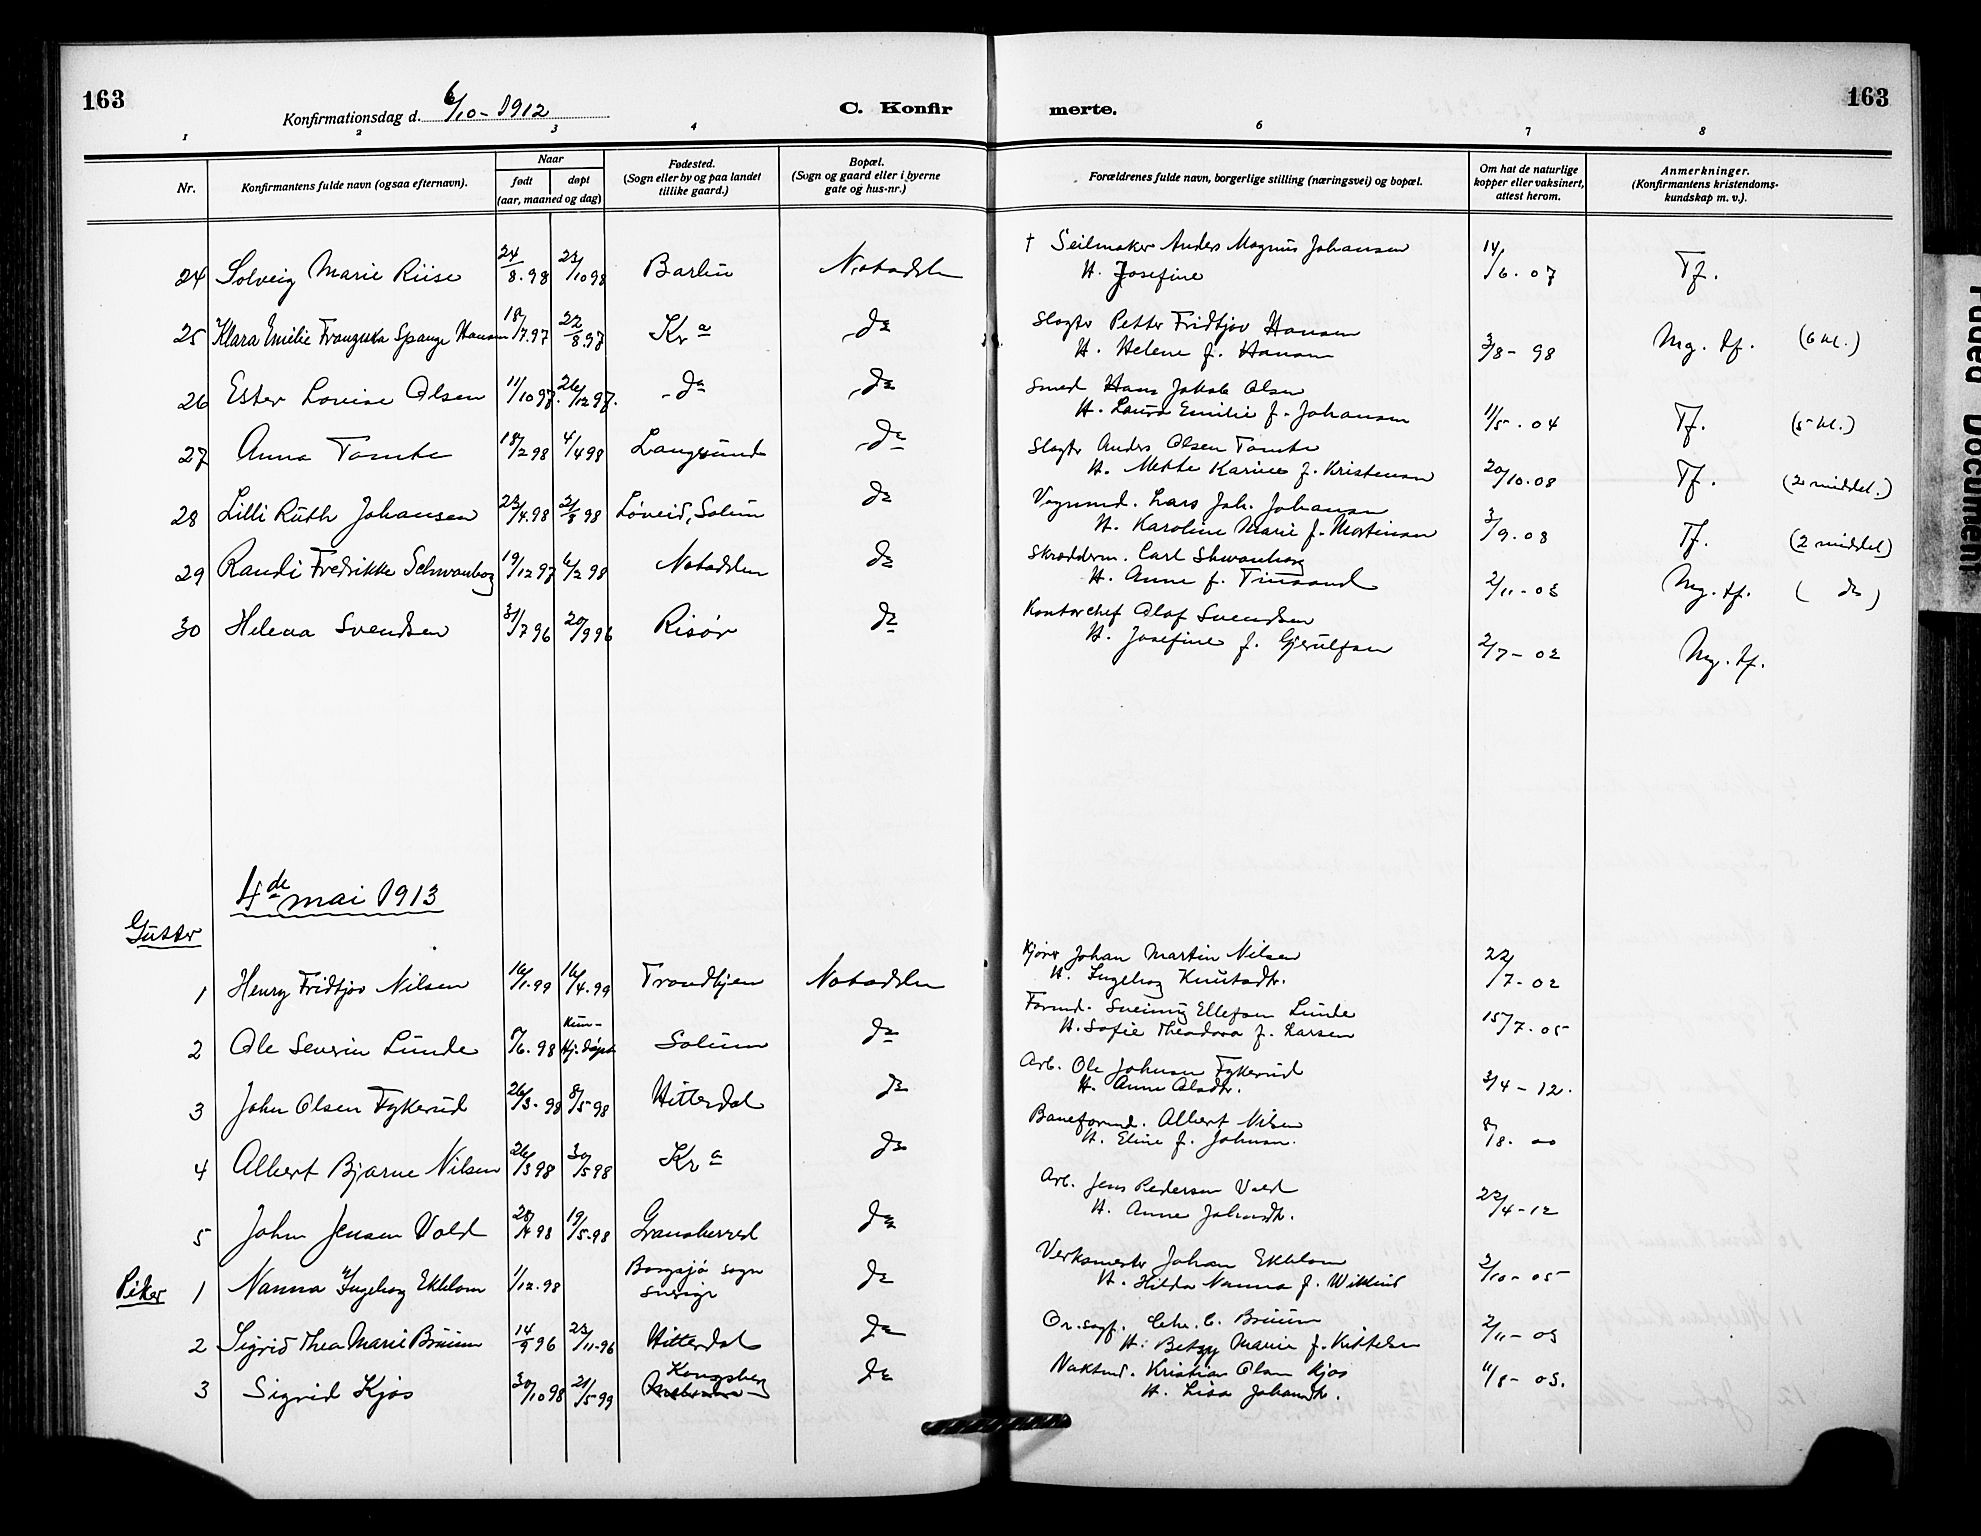 163
Konfirmationsdag d. 6/10 - 1912
C. Konfir
merte.
163
1 2 3 4 6 7 8
Nr.
Konfirmantens fulde navn (ogsaa efternavn).
Naar
født
døpt
(aar, maaned og dag)
Fødested.
(Sogn eller by og paa landet
tillike gaard.)
Bopæl.
(Sogn og gaard eller i byerne
gate og hus-nr.)
Forældrenes fulde navn, borgerlige stilling (næringsvei) og bopæl.
Om hat de naturlige
kopper eller vaksinert,
attest herom.
Anmerkninger.
(Konfirmantens kristendoms-
kundskap m. v.).
24 Solveig Marie Riise 24/8.98 23/10 98 Notodden † Seilmaker Anders Magnus Johansen 14/6.07 Tf.
H. Josefine
25 Klara Emilie Spange Hansen 18/7.97 22/8.97 Kr a do Slagter Petter Fridtjov Hansen 3/8 - 98 Mg. tf. (6 kl.)
H. Helene f. Hansen
26 Ester Lovise Olsen 11/10 97. 26/12 97. - do do Smed Hans Jakob Olsen 11/5.04 Tf. (5 kl.)
H. Laura Emilie f. Johansen
27 Anna Tomte 18/2 98 4/4 98 Langesund do Slagter Anders Olsen Tomte 20/10.08 Tf. (2 middel.)
H. Mette Karine f. Kristensen
28 Lilli Ruth Johansen 23/4.98 21/8 98 Løveid, Solum do Vognmd. Lars Joh. Johansen 3/9.08 Tf. (2 middel)
H. Karoline Marie f. Mortensen
29 Randi Fredrikke Schwanborg 19/12 97 6/2 98 Notodden do Skræderm. Carl Shwanborg 2/11 - 03 Mg. tf. ( do )
H. Anne f. Tinsand
30 Helena Svendsen 31/7 96 20/9 96 Risør do Kontorchef Olaf Svendsen 2/7 - 02 Mg. tf.
H. Josefine f. Gjerulfsen
4de mai 1913
Gutter
1 Henry Fridtjov Nilsen 16/1.99 16/4.99 Trondhjem Notodden Kjører Johan Martin Nilsen 22/7 - 02
H. Ingeborg Knutsdtr.
2 Ole Severin Lunde 8/6.98 Solum do Formd. Sveinung Ellefsen Lunde 15/7.05
H. Sofie Theodora f. Larsen
3 John Olsen Fykerud 26/3 - 98 8/5 - 98 Hitterdal do Arb. Ole Johnsen Fykerud 3/4 - 12.
H. Anne Olsdtr.
4 Albert Bjarne Nilsen 26/3 98 30/5 98 Kr a do Baneformd. Albert Nilsen 8/8. 00
H. Eline f. Johnsen.
5 John Jensen Vold 28/4 98 19/5 - 98 Gransherred do Arb. Jens Pedersen Vold 22/4 - 12
H. Anne Johnsdtr.
Piker
1 Nanna Ingeborg Ekblom 1/12.98 Borgsjø sogn Sverige do Verksmester Johan Ekblom 2/10 - 05
H. Hilda Nanna f. Wiklund
2 Sigrid Thea Marie Bruun 14/9 96 23/11 - 96 Hitterdal do Or.sagf. Chr. C. Bruun 2/11 - 03
H. Betzy Marie f. Kittelsen
3 Sigrid Kjos 30/10 98 21/5 - 99 Kongsberg do Vaktmd. Kristian Olsen Kjos 11/8 - 03.
H. Lisa Johansdtr.